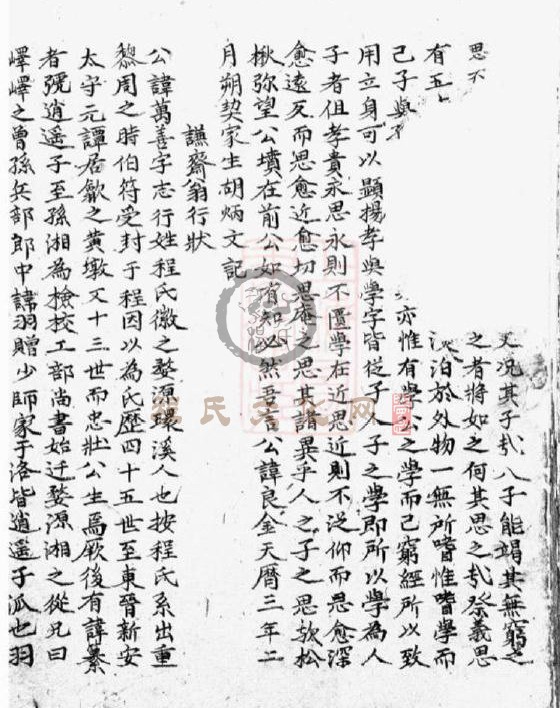 天况其子哉人子能竭其無窮之
之者將如之何其思之哉祭義思
思不
淡泊於外物一無所嗜惟嗜學而
有五
亦惟有學公之學而已窮經所以致
己子與
用立身可以顯揚孝與學字皆從子人子之學即所以學為人
子者但孝貴永思永則不匱學在近思近則不泛仰而思愈深
愈遠反而思愈近愈切思庵之思其諸異乎人之子之思歟松
楸弥望公墳在前公如有知必然吾言公諱良金天曆三年二
月朔契家生胡炳文記
謙齋翁行狀
公諱萬善字志行姓程氏徽之婺源環溪人也按程氏系出重
黎周之時伯符受封于程因以為氏歷四十五世至東晉新安
太守元譚居歙之黄墩又十三世而忠壯公生焉厥後有諱纂
者號逍遥子至孫湘為檢校工部尚書始迁婺源湘之從兄曰
嶧嶧之曾孫兵部郎中諱羽贈少師家于洛皆逍遥子派也羽